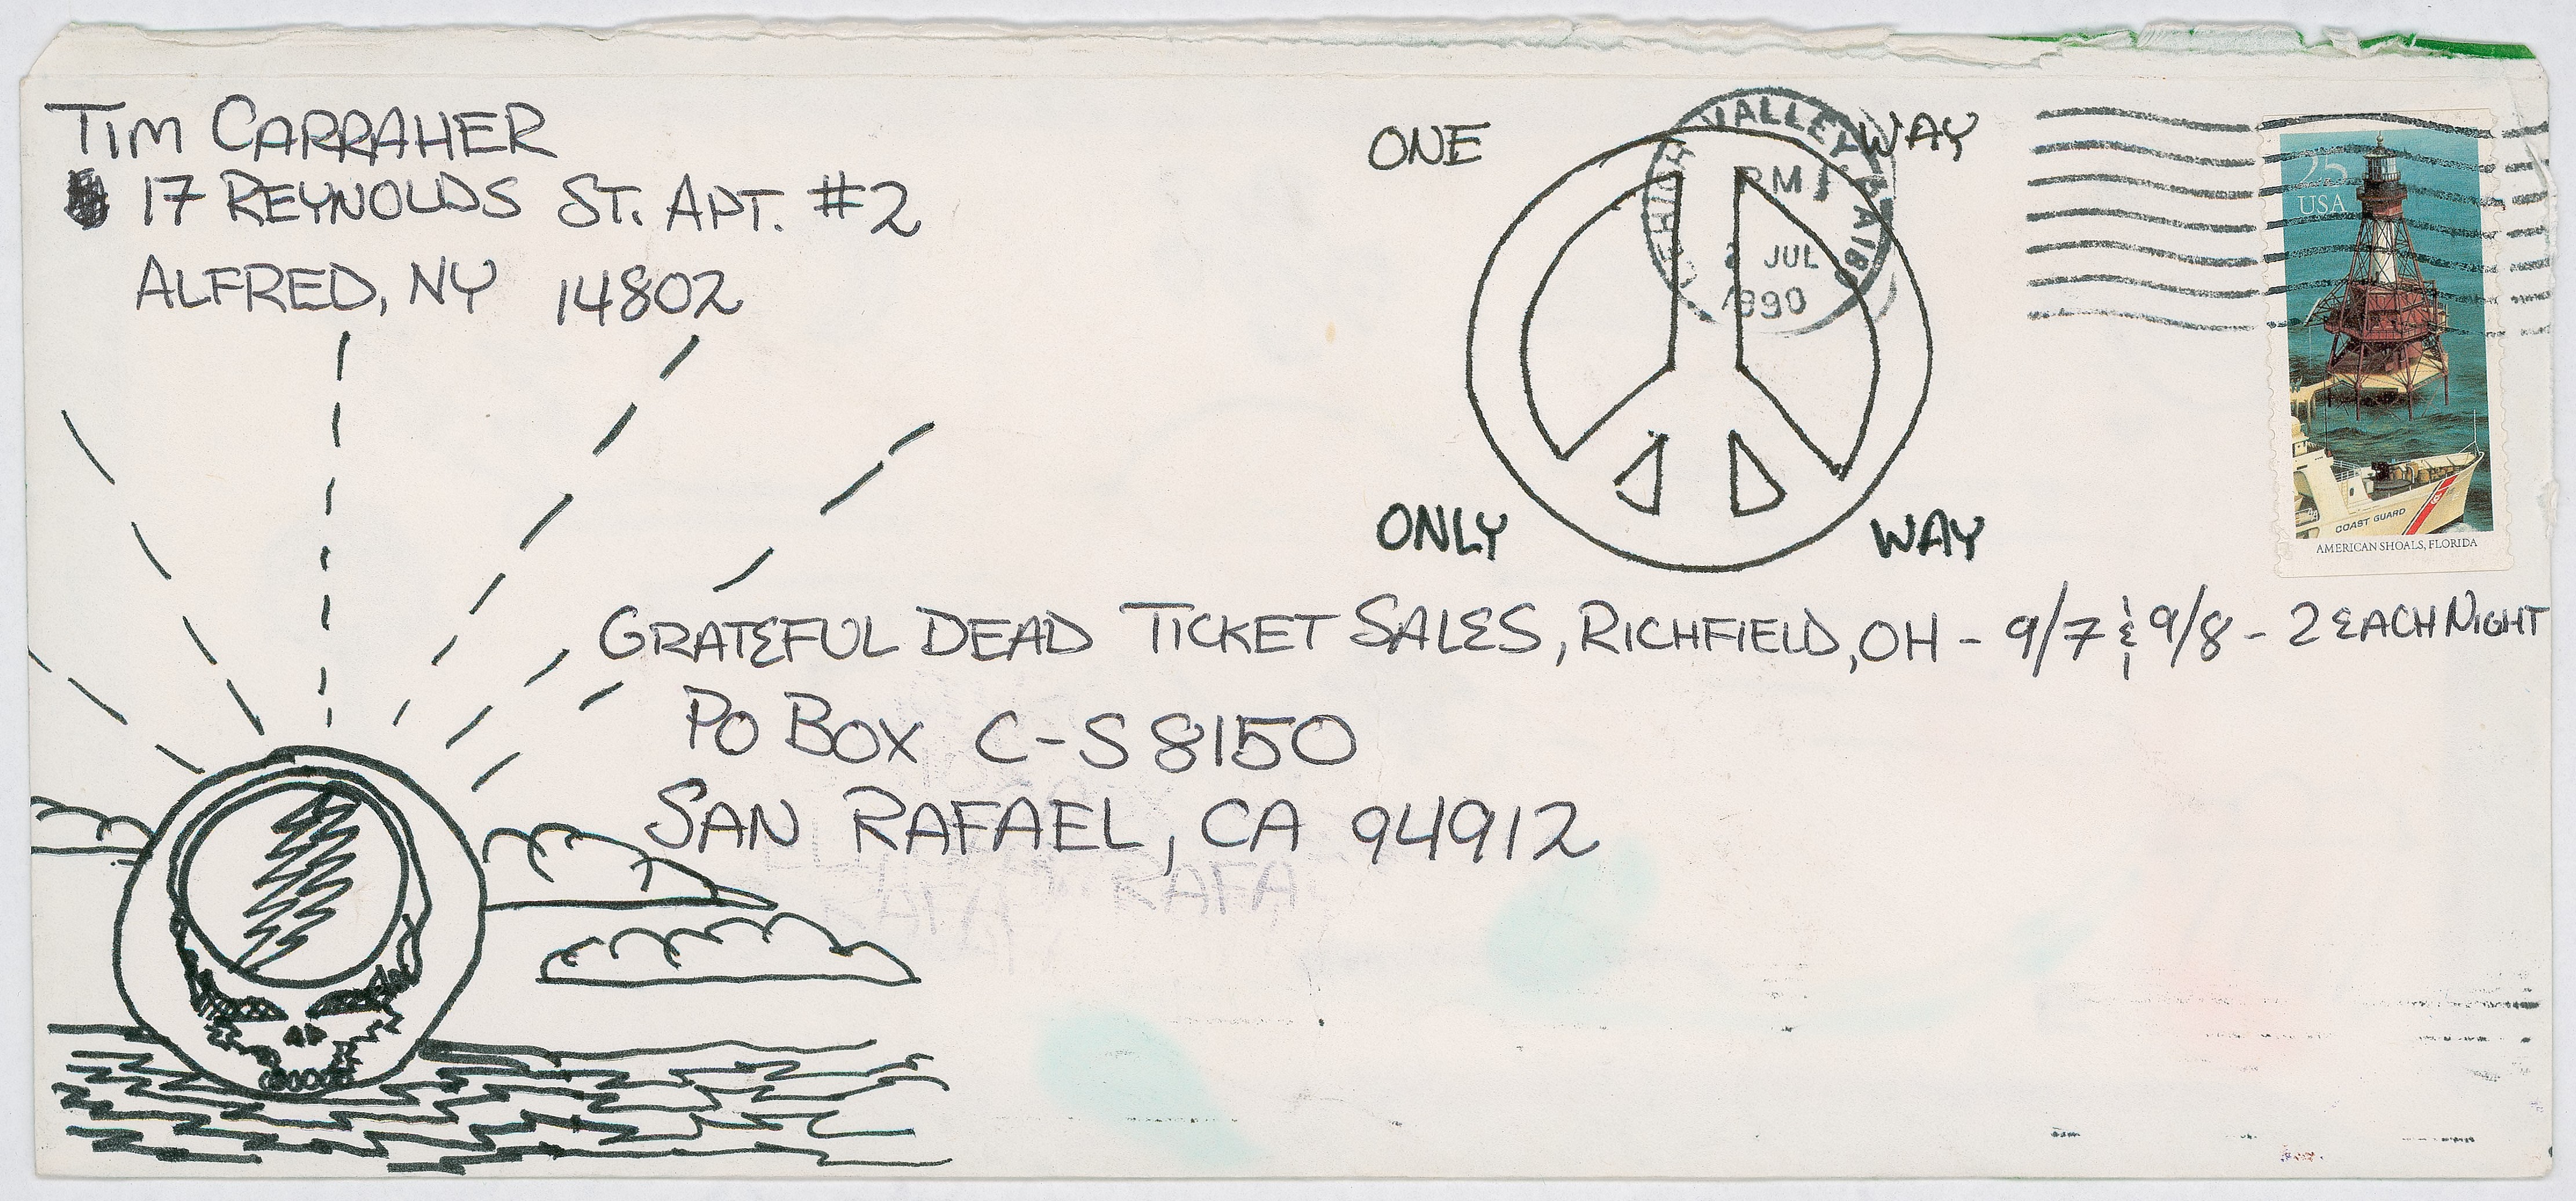 TIM CARRAHER
17 REYNOLDS ST. APT. #2
ALFRED, NY 14802
ONE WAY
ONLY WAY
LEHIGH VALLEY PA 18
PM
2 JUL
1990
25
USA
COAST GUARD
AMERICAN SHOALS, FLORIDA
GRATEFUL DEAD TICKET SALES, RICHFIELD, OH - 9/7 & 9/8 - 2 EACH NIGHT
PO BOX C-S 8150
SAN RAFAEL, CA 94912
RAFA